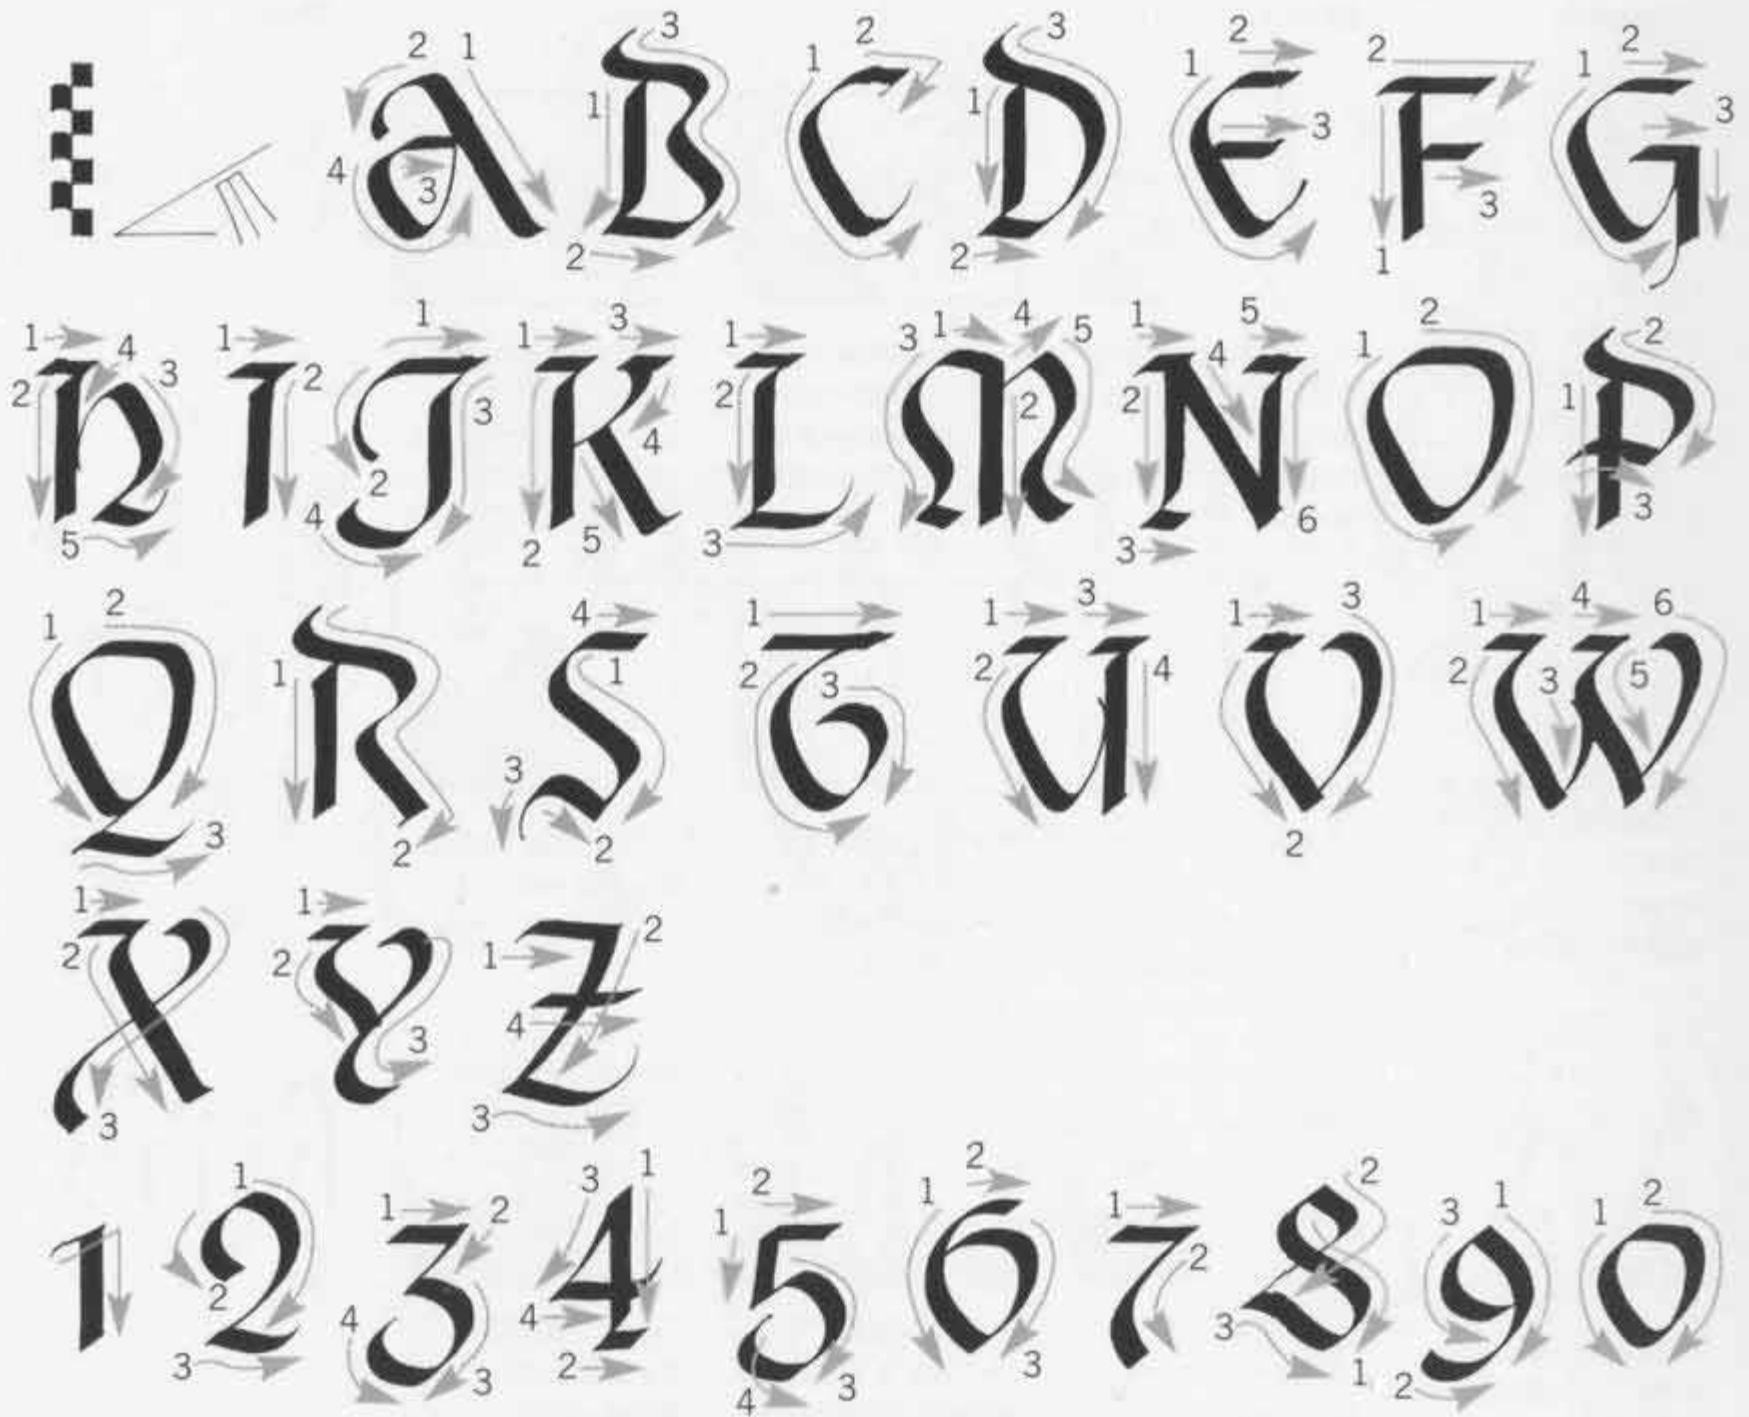 A B C D E F G
H I J K L M N O P
Q R S T U V W
X Y Z
1 2 3 4 5 6 7 8 9 0